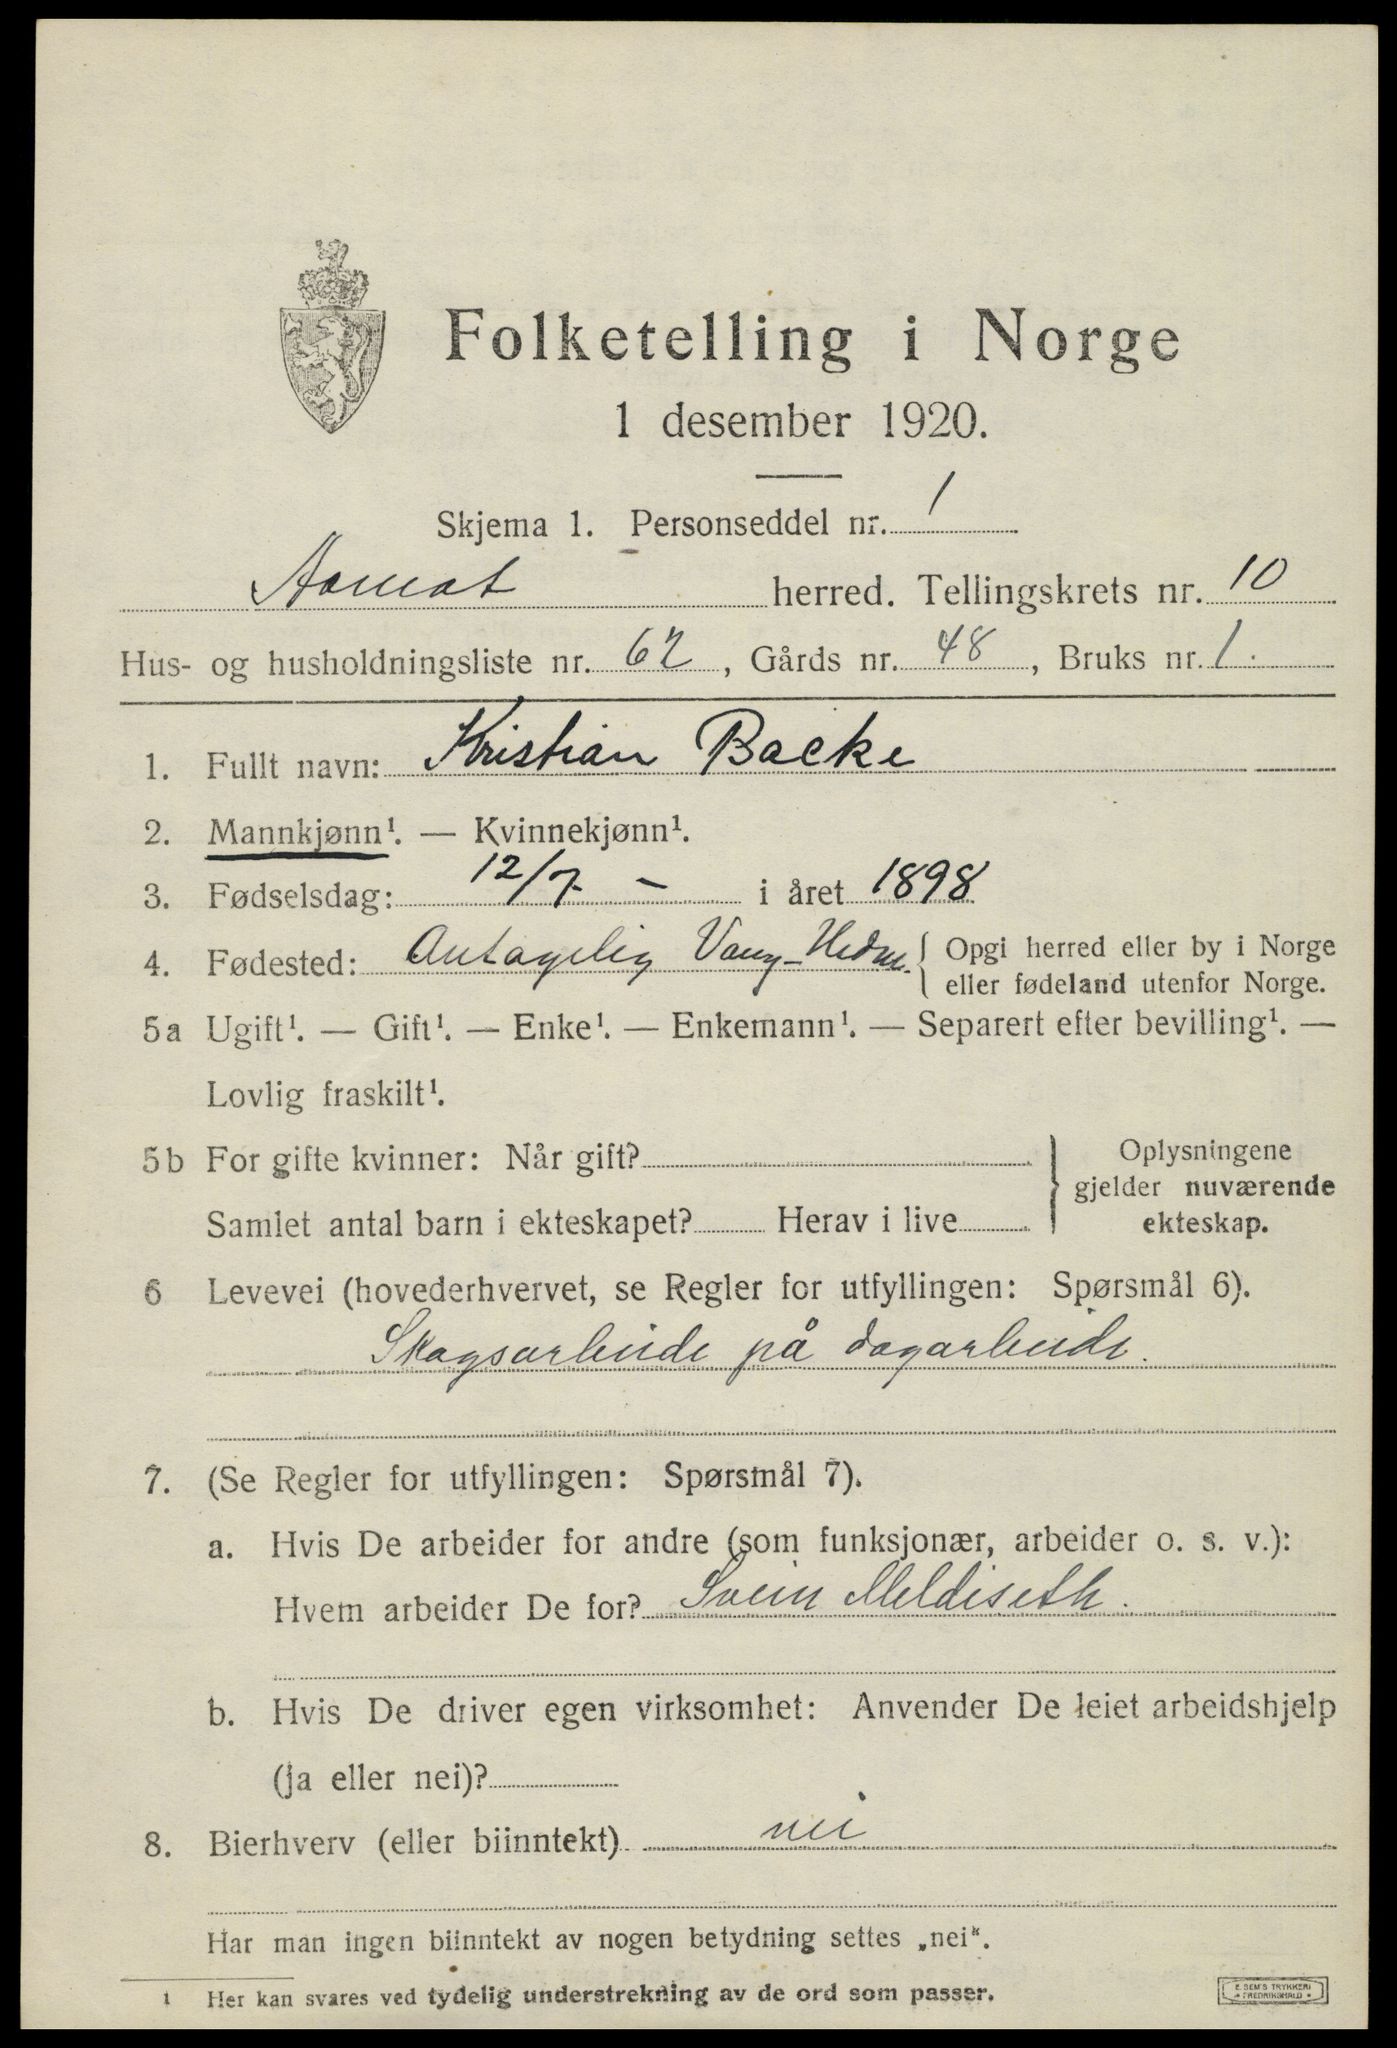 Folketelling i Norge
1 desember 1920.
Skjema 1. Personseddel nr. 1
Aamot herred. Tellingskrets nr. 10
Hus- og husholdningsliste nr. 62, Gårds nr. 48, Bruks nr. 1.
1. Fullt navn: Kristian Backe
2. Mannkjønn¹. — Kvinnekjønn¹.
3. Fødselsdag: 12/7 - i året 1898
4. Fødested: Antagelig Vang-Hedm. { Opgi herred eller by i Norge
eller fødeland utenfor Norge.
5a Ugift¹. — Gift¹. — Enke¹. — Enkemann¹. — Separert efter bevilling¹. —
Lovlig fraskilt¹.
5b For gifte kvinner: Når gift? } Oplysningene
gjelder nuværende
Samlet antal barn i ekteskapet? Herav i live ekteskap.
6 Levevei (hovederhvervet, se Regler for utfyllingen: Spørsmål 6).
Skogsarbeide på dagarbeide.
7. (Se Regler for utfyllingen: Spørsmål 7).
a. Hvis De arbeider for andre (som funksjonær, arbeider o. s. v.):
Hvem arbeider De for? Svein Meldiseth.
b. Hvis De driver egen virksomhet: Anvender De leiet arbeidshjelp
(ja eller nei)?
8. Bierhverv (eller biinntekt) nei
Har man ingen biinntekt av nogen betydning settes „nei“.
1 Her kan svares ved tydelig understrekning av de ord som passer.
E. SEM'S TRYKKERI
FREDRIKSHALD